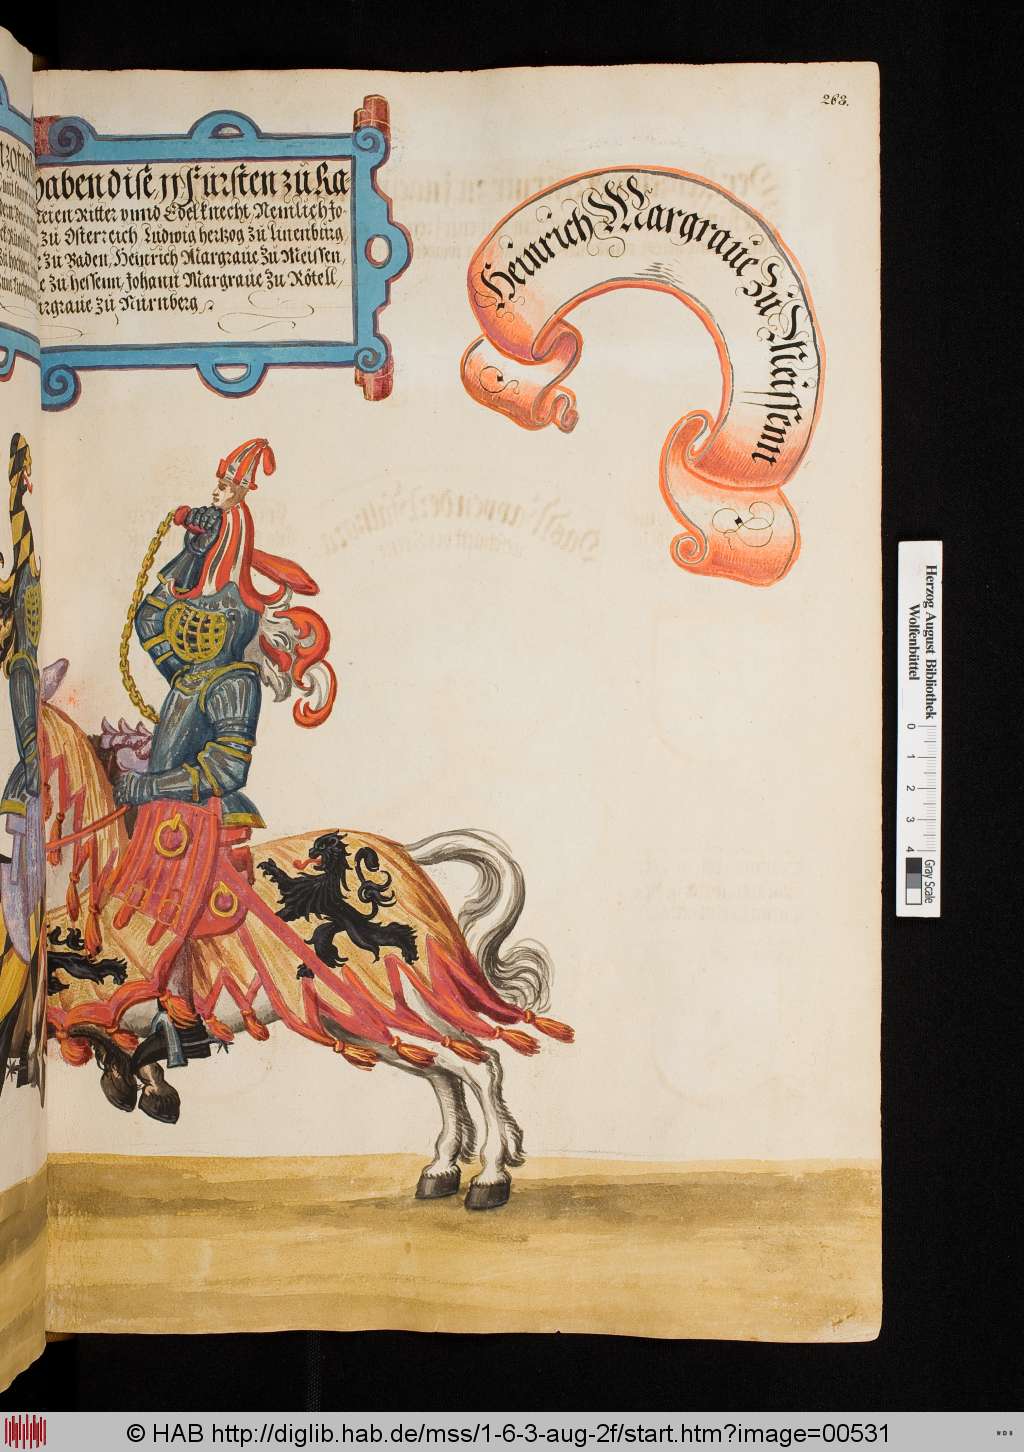 263.
haben dise, 11 Fürsten zu Ra
Ritter vnnd Edelknecht Nemlich Jo-
zu Österreich Ludwig hertzog zu Lutenburg,
zu Baden, Heinrich Margraue zu Meissen,
zu hessenn, Johann Margraue zu Rötell,
zu Nürnberg
Heinrich Margraue zu Meissenn
Herzog August Bibliothek
Wolfenbüttel
0 1 2 3 4
Gray Scale
© HAB http://diglib.hab.de/mss/1-6-3-aug-2f/start.htm?image=00531
WDB